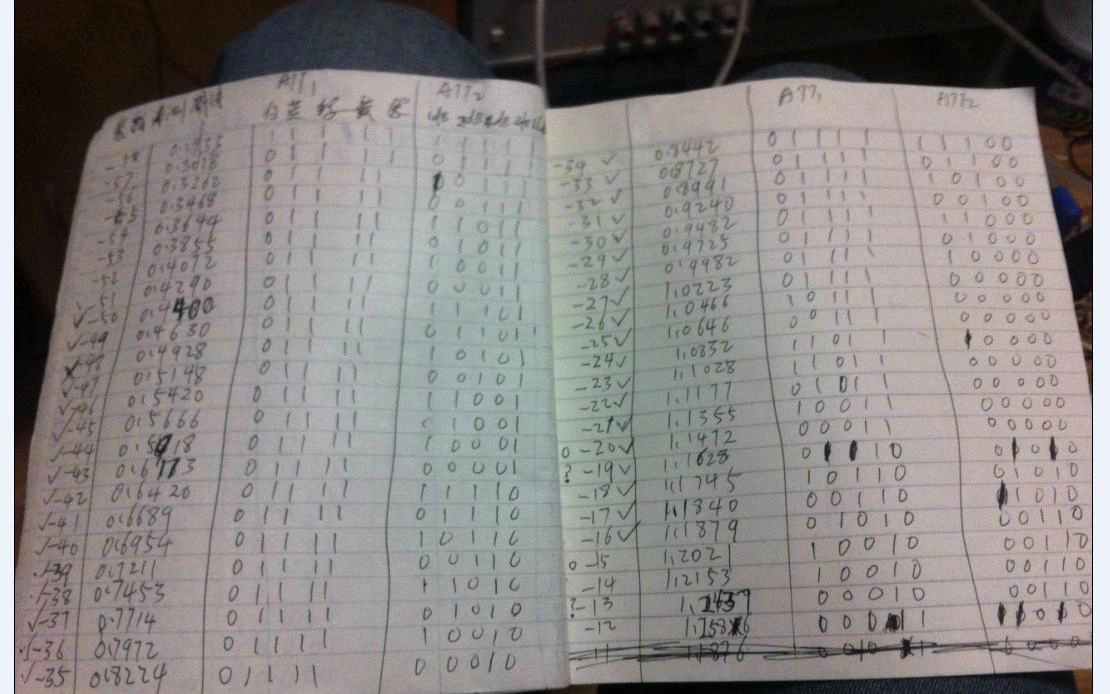 ATT1 ATT2
白 蓝 绿 黄
-58 0.2933 0 1 1 1 1 1 1 1 1 1
-57 0.3018 0 1 1 1 1 0 1 1 1 1
-56 0.3262 0 1 1 1 1 1 0 1 1 1
-55 0.3468 0 1 1 1 1 0 0 1 1 1
-54 0.3644 0 1 1 1 1 1 1 0 1 1
-53 0.3855 0 1 1 1 1 0 1 0 1 1
-52 0.4072 0 1 1 1 1 1 0 0 1 1
-51 0.4290 0 1 1 1 1 0 0 0 1 1
√-50 0.4400 0 1 1 1 1 1 1 1 0 1
√-49 0.4630 0 1 1 1 1 0 1 1 0 1
-48 0.4928 0 1 1 1 1 1 0 1 0 1
√-47 0.5148 0 1 1 1 1 0 0 1 0 1
√-46 0.5420 0 1 1 1 1 1 1 0 0 1
√-45 0.5666 0 1 1 1 1 0 1 0 0 1
√-44 0.5918 0 1 1 1 1 1 0 0 0 1
√-43 0.6173 0 1 1 1 1 0 0 0 0 1
√-42 0.6420 0 1 1 1 1 1 1 1 1 0
√-41 0.6689 0 1 1 1 1 0 1 1 1 0
√-40 0.6954 0 1 1 1 1 1 0 1 1 0
√-39 0.7211 0 1 1 1 1 0 0 1 1 0
√-38 0.7453 0 1 1 1 1 1 1 0 1 0
√-37 0.7714 0 1 1 1 1 0 1 0 1 0
√-36 0.7972 0 1 1 1 1 1 0 0 1 0
√-35 0.8224 0 1 1 1 1 0 0 0 1 0
ATT1 ATT2
-34 √ 0.8442 0 1 1 1 1 1 1 1 0 0
-33 √ 0.8727 0 1 1 1 1 0 1 1 0 0
-32 √ 0.8991 0 1 1 1 1 1 0 1 0 0
-31 √ 0.9240 0 1 1 1 1 0 0 1 0 0
-30 √ 0.9482 0 1 1 1 1 1 1 0 0 0
-29 √ 0.9725 0 1 1 1 1 0 1 0 0 0
-28 √ 0.9982 0 1 1 1 1 1 0 0 0 0
-27 √ 1.0223 0 1 1 1 1 0 0 0 0 0
-26 √ 1.0466 1 0 1 1 1 0 0 0 0 0
-25 √ 1.0646 0 0 1 1 1 0 0 0 0 0
-24 √ 1.0832 1 1 0 1 1 1 0 0 0 0
-23 √ 1.1028 1 1 0 1 1 0 0 0 0 0
-22 √ 1.1177 0 1 0 1 1 0 0 0 0 0
-21 √ 1.1355 1 0 0 1 1 0 0 0 0 0
0 -20 √ 1.1472 0 0 0 1 1 0 0 0 0 0
? -19 √ 1.1628 0 1 1 1 0 0 1 0 1 0
-18 √ 1.1745 1 0 1 1 0 0 1 0 1 0
-17 √ 1.1840 0 0 1 1 0 1 1 0 1 0
-16 √ 1.1879 0 1 0 1 0 0 0 1 1 0
0 -15 1.2021 1 0 0 1 0 0 0 1 1 0
-14 1.2153 1 0 0 1 0 0 0 1 1 0
?-13 0 0 0 1 0 0 0 1 1 0
-12